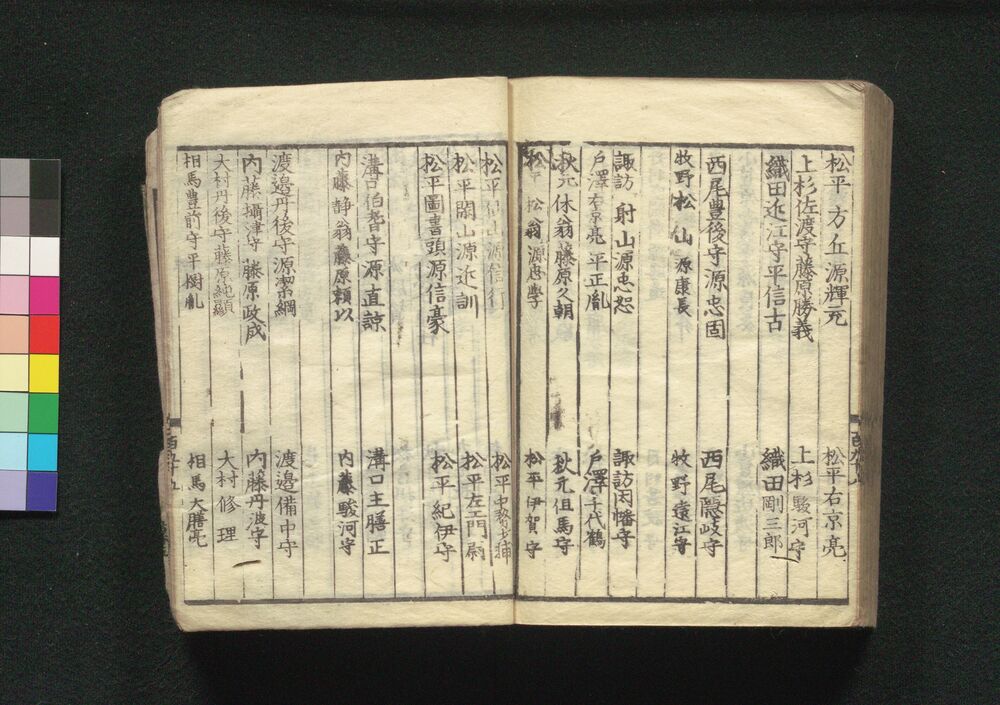 松平一方丘源輝元 松平右京亮
上杉佐渡守藤原勝義 上杉駿河守
織田近江守平信古 織田剛三郎
西尾豊後守源忠固 西尾隠岐守
牧野松仙源康長 牧野遠江守
諏訪射山源忠恕 諏訪因幡守
戸澤右京亮平正胤 戸澤千代鶴
秋元休翁藤原久朝 秋元但馬守
松平松翁源忠學 松平伊賀守
松平 山源信行 松平中務少輔
松平閑山源近訓 松平左エ門尉
松平圖書頭源信豪 松平紀伊守
溝口伯耆守源直諒 溝口主膳正
内藤静翁藤原頼以 内藤駿河守
渡邉丹後守源潔綱 渡邉備中守
内藤攝津守藤原政成 内藤丹波守
大村丹後守藤原純顯 大村修理
相馬豊前守平樹胤 相馬大膳亮